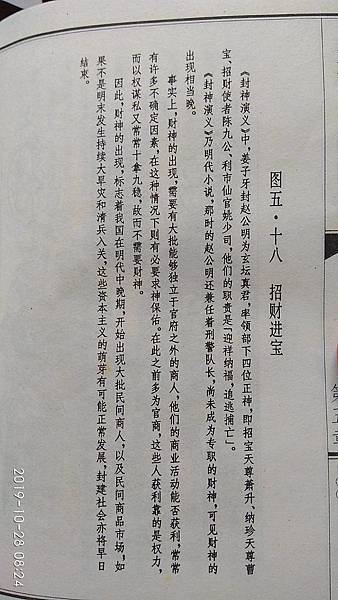 图五·十八　招财进宝
《封神演义》中，姜子牙封赵公明为玄坛真君，率领部下四位正神，即招宝天尊萧升、纳珍天尊曹
宝、招财使者陈九公、利市仙官姚少司，他们的职责是「迎祥纳福，追逃捕亡」。
《封神演义》乃明代小说，那时的赵公明还兼任着刑警队长，尚未成为专职的财神，可见财神的
出现相当晚。
事实上，财神的出现，需要有大批能够独立于官府之外的商人，他们的商业活动能否获利，常常
有许多不确定因素，在这种情况下则有必要求神保佑。在此之前多为官商，这些人获利靠的是权力，
而以权谋私又常常十拿九稳，故而不需要财神。
因此，财神的出现，标志着我国在明代中晚期，开始出现大批民间商人，以及民间商品市场，如
果不是明末发生持续大旱灾和清兵入关，这些资本主义的萌芽有可能正常发展，封建社会亦将早日
结束。
第五章
2019-10-28 06:24